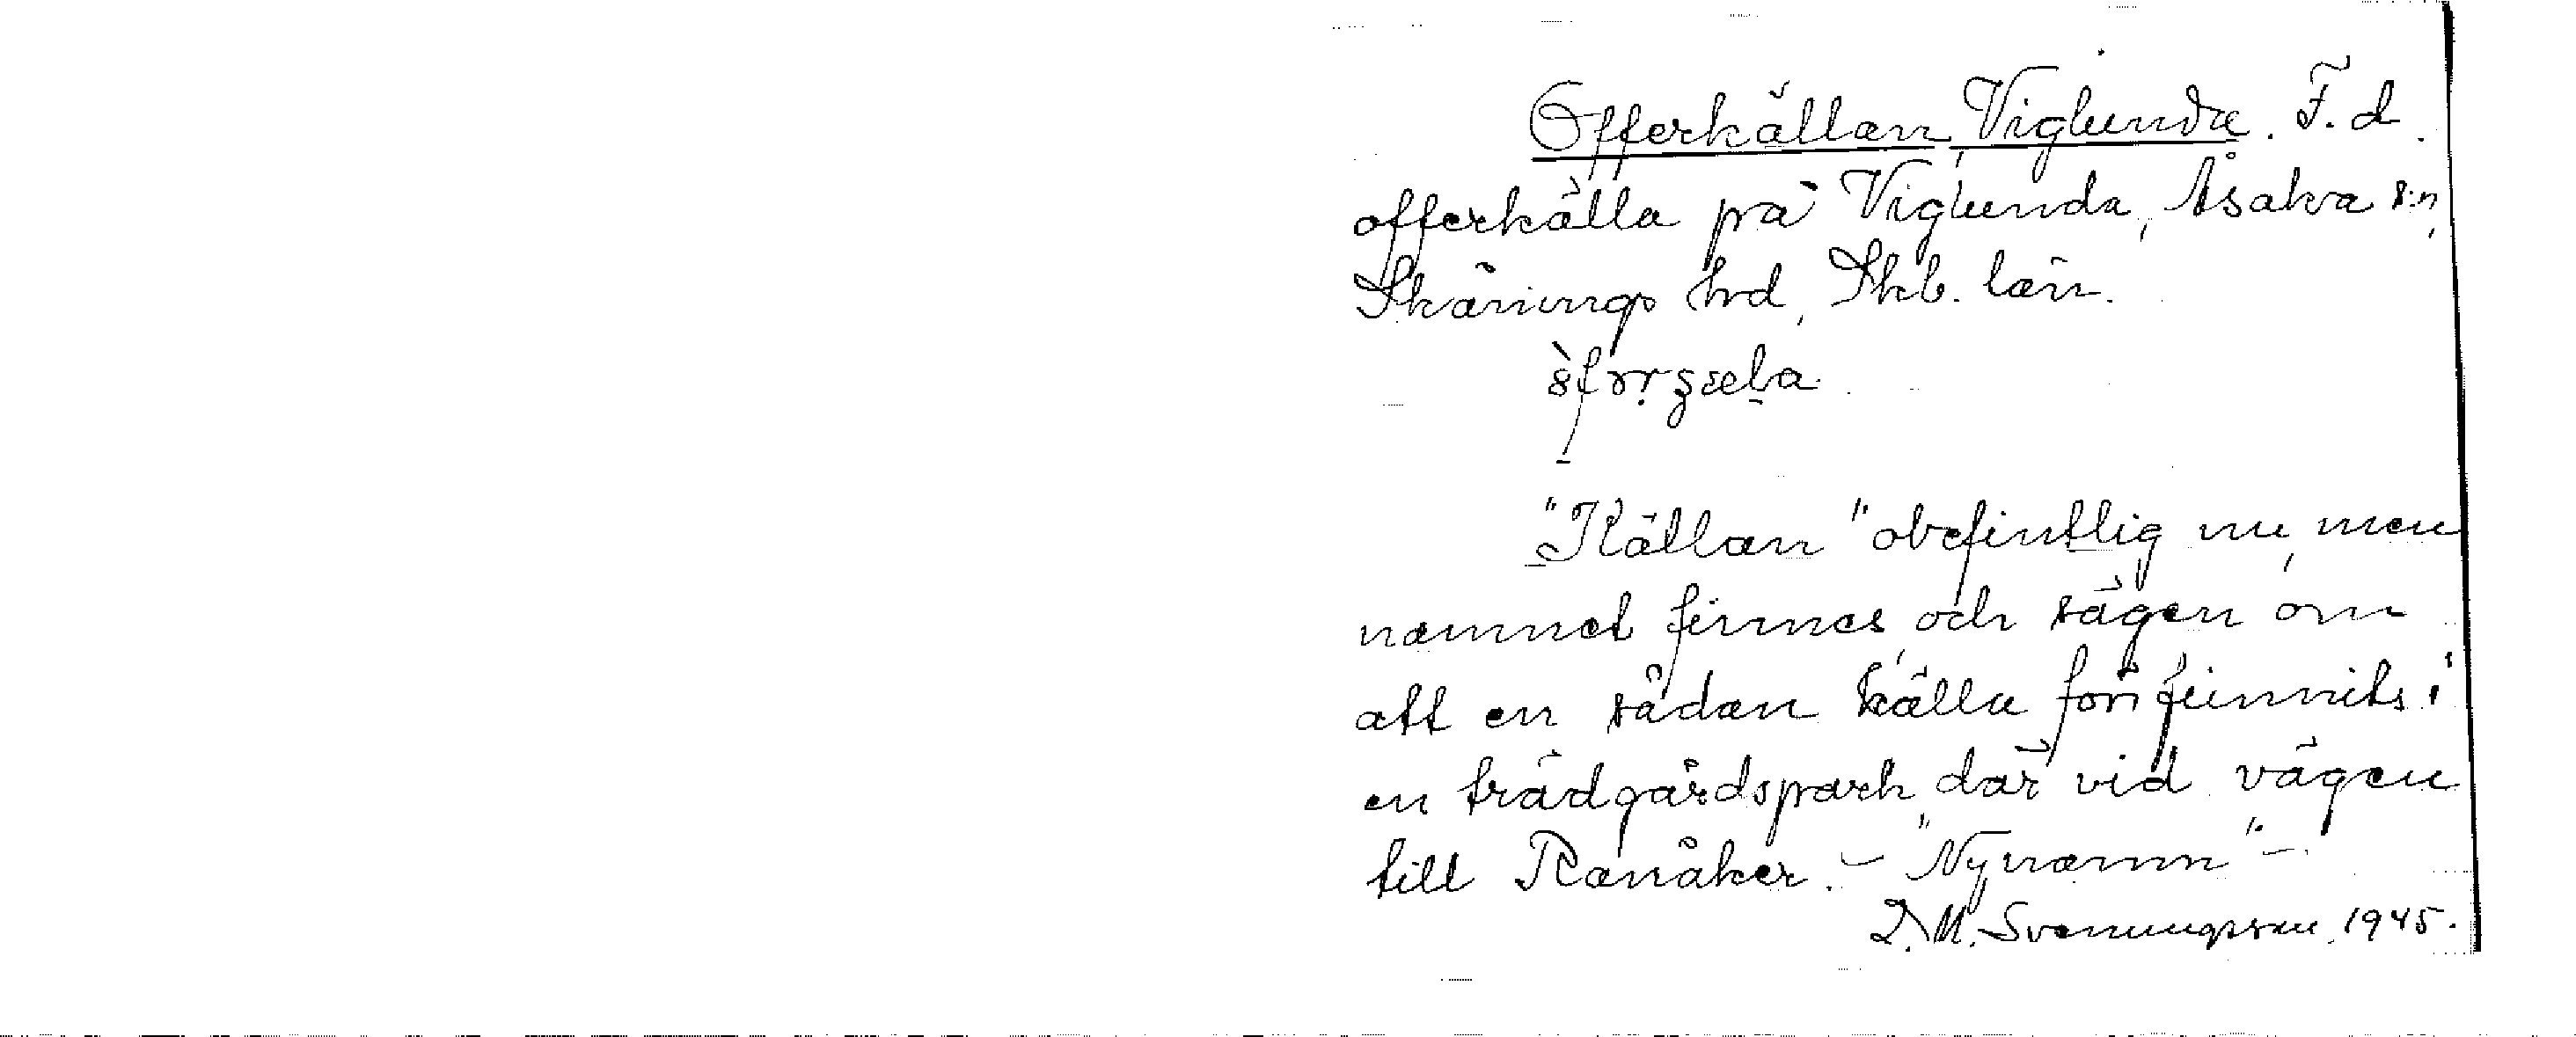 Offerkällan, Viglunda. F.d.
offerkälla på Viglunda, Åsaka s:n,
Skånings hd, Skb. län.
"Källan" obefintlig nu, men
namnet finnes, och sägen om
att en sådan källa förr funnits i
en trädgårdspark där vid vägen
till Ranåker. – "Nynamn" –.
M. Svenungsson, 1945.